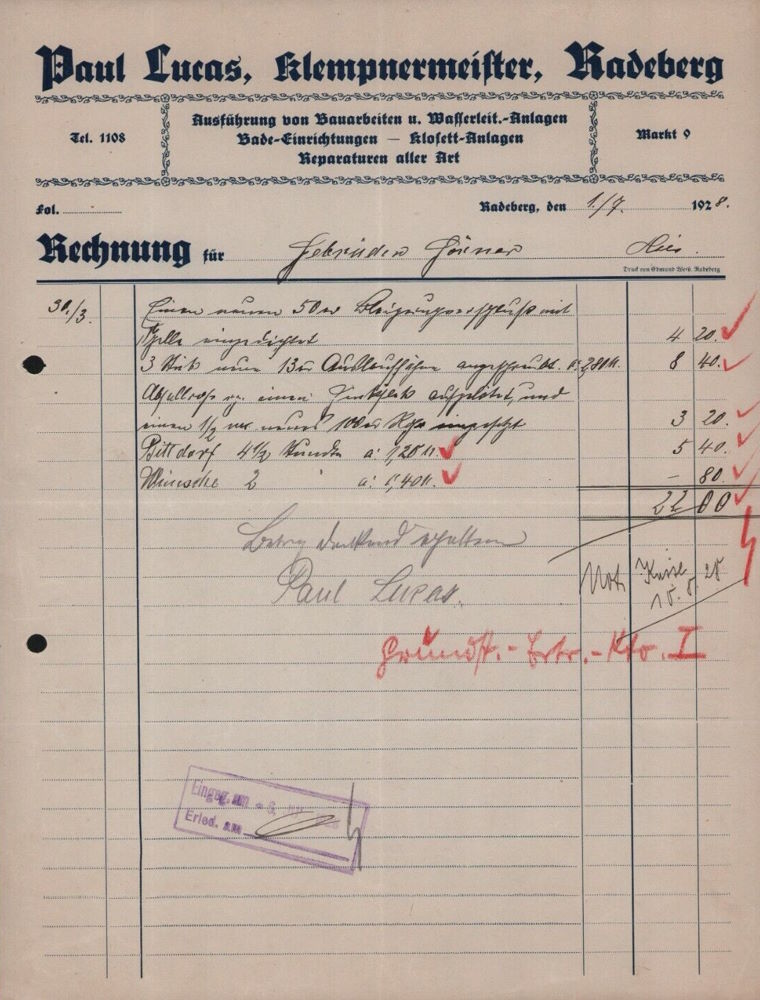 Paul Lucas, Klempnermeister, Radeberg
Tel. 1108
Ausführung von Bauarbeiten u. Wasserleit.-Anlagen
Bade-Einrichtungen — Klosett-Anlagen
Reparaturen aller Art
Markt 9
Fol.
Radeberg, den 1./7. 1928.
Rechnung für Gebrüder Hier.
Druck von Edmund Weiß, Radeberg
30./3. Einen neuen 50er mit
eingedichtet 4 20.
3 Stück neue 13er Auslaufhähne angeschraubt a: 2,80 M. 8 40.
einen aufgelötet, und
einen 1/2 mtr neues 100er Rohr eingesetzt 3 20.
Bittdorf 4 1/2 Stunden a: 1,20 M. 5 40.
2 " a: 0,40 M. – 80.
22 00
Betrag dankend erhalten
Paul Lucas.
Kasse
Grundst.-Ertr.-Kto. I
Eingeg. am
Erled. am